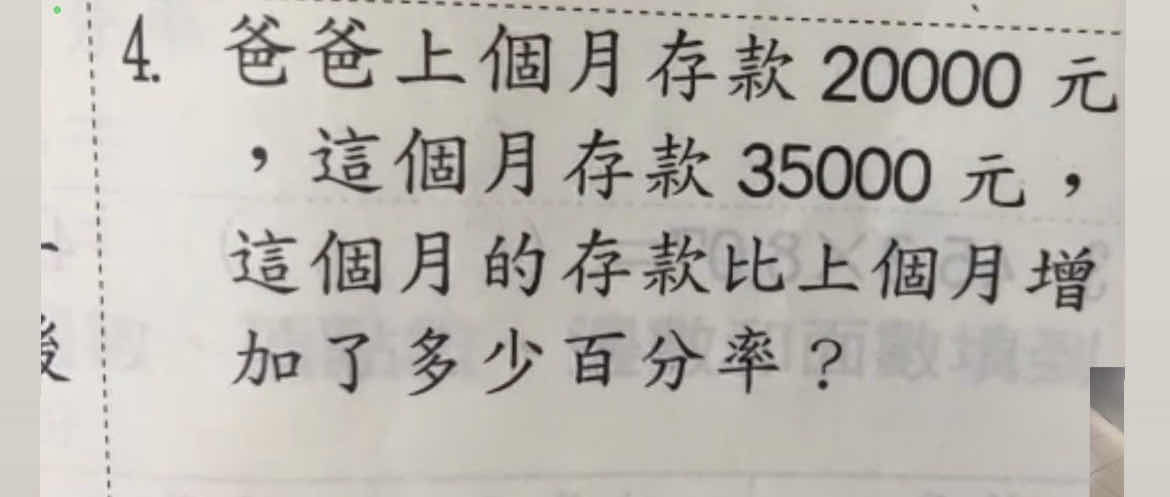 4. 爸爸上個月存款 20000 元
，這個月存款 35000 元，
這個月的存款比上個月增
加了多少百分率？